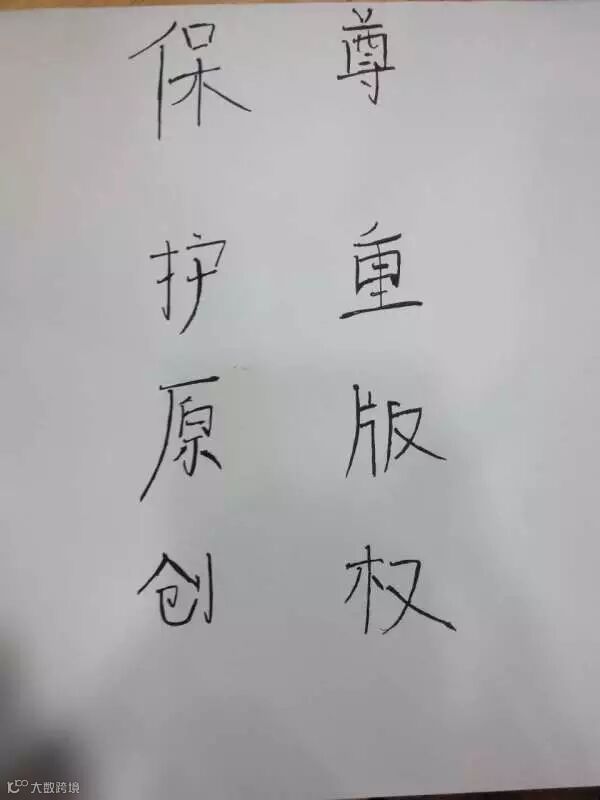 尊重版权
保护原创
大数跨境